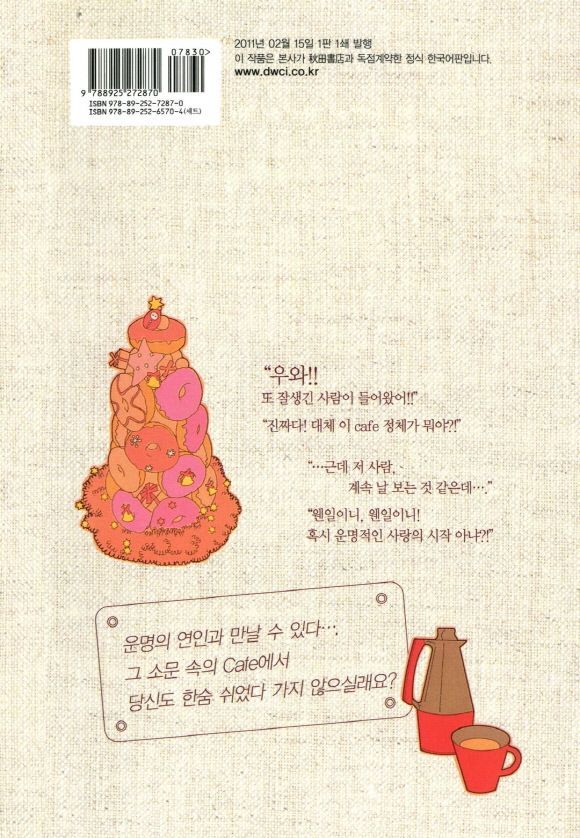 07830>
9 788925 272870
ISBN 978-89-252-7287-0
ISBN 978-89-252-6570-4(세트)
2011년 02월 15일 1판 1쇄 발행
이 작품은 본사가 秋田書店과 독점계약한 정식 한국어판입니다.
www.dwci.co.kr
“우와!!
또 잘생긴 사람이 들어왔어!!”
“진짜다! 대체 이 cafe 정체가 뭐야?!”
“…근데 저 사람,
계속 날 보는 것 같은데….”
“웬일이니, 웬일이니!
혹시 운명적인 사랑의 시작 아냐?!”
운명의 연인과 만날 수 있다….
그 소문 속의 Cafe에서
당신도 한숨 쉬었다 가지 않으실래요?